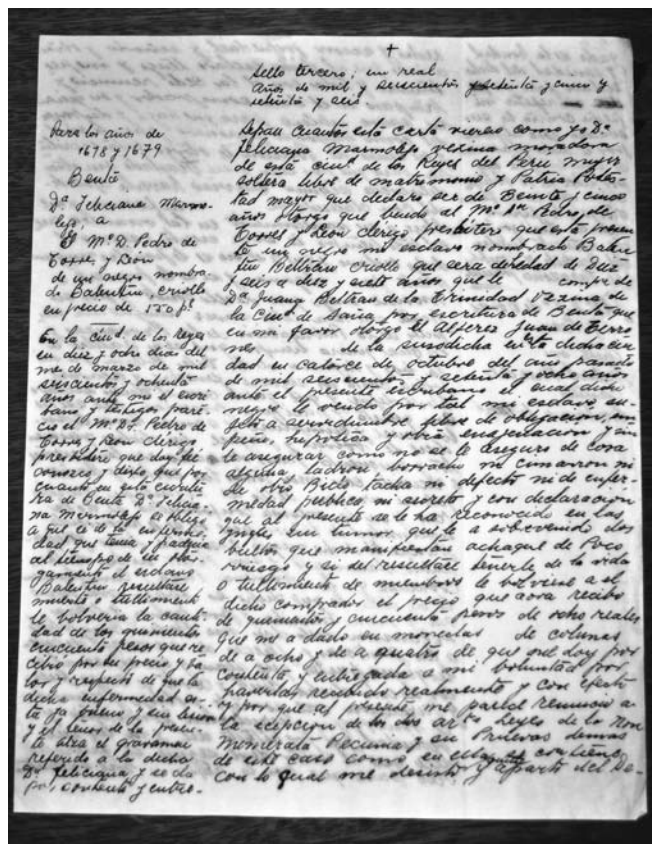 +
Sello tercero; un real
Años de mil y seiscientos y setenta y cinco y
setenta y seis.
Para los años de
1678 y 1679
Benta
Dª Feliciana Marmo-
lejo, a
El Mº D. Pedro de
Torres, y León
de un negro nombra-
do Balentin, criollo
en precio de 550 ps.
En la ciud. de los Reyes
en diez y ocho dias del
mes de marzo de mil
seiscientos y ochenta
años ante mi el escri-
bano y testigos pare-
cio el Mº Dn. Pedro de
Torres y Leon clerigo,
presbitero que doy fee
conozco y dixo que por
cuanto en esta escritu-
ra de Benta Dª Felicia-
na Marmolejo se obligo
a que si de la enferme-
dad que tenia y padecia
al tiempo de su otor-
gamiento el esclavo
Balentin resultare
muerte o tullimiento
le bolveria la canti-
dad de los quinientos
cincuenta pesos que re-
cibio por su precio y ba-
lor y respecto de que la
dicha enfermedad es-
ta ya bueno y sin lesion
y el tenor de la presen-
te alza el gravamen
referido a la dicha
Dª Feliciana y se da
por contento y entre-
Sepan cuantos esta carta vieren como yo Dª
Feliciana Marmolejo vezina moradora
de esta ciud. de los Reyes del Peru muger
soltera libre de matrimonio y Patria Potes-
tad mayor que declaro ser de Beinte y cinco
años otorgo que bendo al Mº Dn Pedro de
Torres y Leon clerigo presbitero que esta presen-
te un negro mi esclavo nombrado Balen-
tin Beltran criollo que sera de hedad de Diez
y seis a diez y siete años que le compre de
Dª Juana Beltran de la Trinidad Vezina de
la Ciud. de Saña por escritura de Benta que
en mi favor otorgo el Alferez Juan de Terro
nes de la susodicha en la dicha ciu
dad en catorce de octubre del año pasado
de mil seiscientos y setenta y ocho años
ante el presente escribano el cual dicho
negro le vendo por tal mi esclavo su-
jeto a servidumbre libre de obligacion, em
peño, hipoteca y otra enajenación y sin
le asegurar como no se le aseguro de cosa
alguna, ladron, borracho ni cimarron ni
de otro Bicio tacha ni defecto ni de enfer-
medad publica ni secreta y con declaracion
que al presente se le ha reconocido en las
yngles un tumor que le a sobrevenido dos
bultos que manifiestan achaque de Poco
riesgo y si del resultare perderle de la vida
o tullimiento de miembros le bolviere a el
dicho comprador el precio que aora recibo
de quinientos y cincuenta pesos de ocho reales
que me a dado en monedas de colunas
de a ocho y de a quatro de que me doy por
contenta y entregada a mi boluntad por
haverlos recibido realmente y con efecto
y por que al presente me parece renuncio a
la excepcion de los dos arts Leyes de la non
Numerata Pecunia y su Prueva demas
de este caso como en ellas se contiene
con lo qual me desisto y aparto del De-